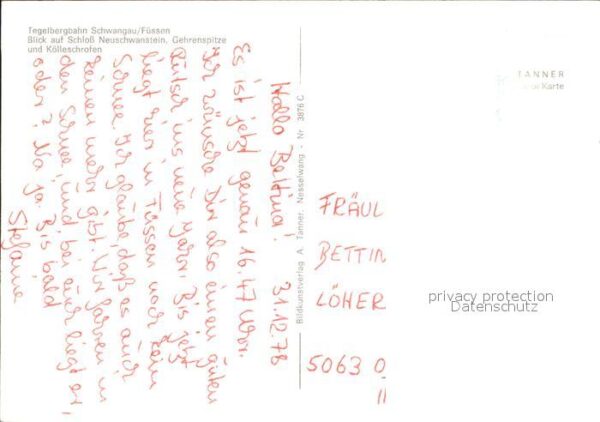 Tegelbergbahn Schwangau/Füssen
Blick auf Schloß Neuschwanstein, Gehrenspitze
und Kölleschrofen
Hallo Bettina! 31.12.78
Es ist jetzt genau 16.47 Uhr.
Ich wünsche Dir also einen guten
Rutsch ins neue Jahr. Bis jetzt
liegt hier in Füssen noch kein
Schnee. Ich glaube, daß es auch
keinen mehr gibt. Wir fahren in
den Schnee, und bei euch liegt er,
oder? Na ja. Bis bald
Stefanie
Bildkunstverlag A. Tanner, Nesselwang - Nr. 3876 C
TANNER
Karte
FRÄUL
BETTIN
LÖHER
5063 O
11
privacy protection
Datenschutz